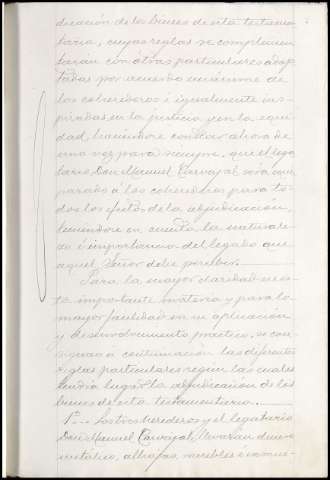 dicación de los bienes de esta testamen-
taria, cuyas reglas se complemen-
tarán con otras particulares adop-
tadas por acuerdo unánime de
los coherederos é igualmente ins-
piradas en la justicia y en la equi-
dad, haciendose constar ahora de
una vez para siempre, que el lega-
tario Don Manuel Carvajal será equi-
parado á los coherederos para to-
dos los efectos de la adjudicación,
teniendose en cuenta la naturale-
za é importancia del legado que
aquel Señor debe percibir.
Para la mayor claridad en es-
ta importante materia y para la
mayor facilidad en su aplicación
y desenvolvimiento práctico, se con-
signan á continuación las diferentes
reglas particulares según las cuales
tendrá lugar la adjudicación de los
bienes de esta testamentaria.
1ª Los tres herederos y el legatario
Don Manuel Carvajal, llevarán dinero
metálico, alhajas, muebles é inmue-